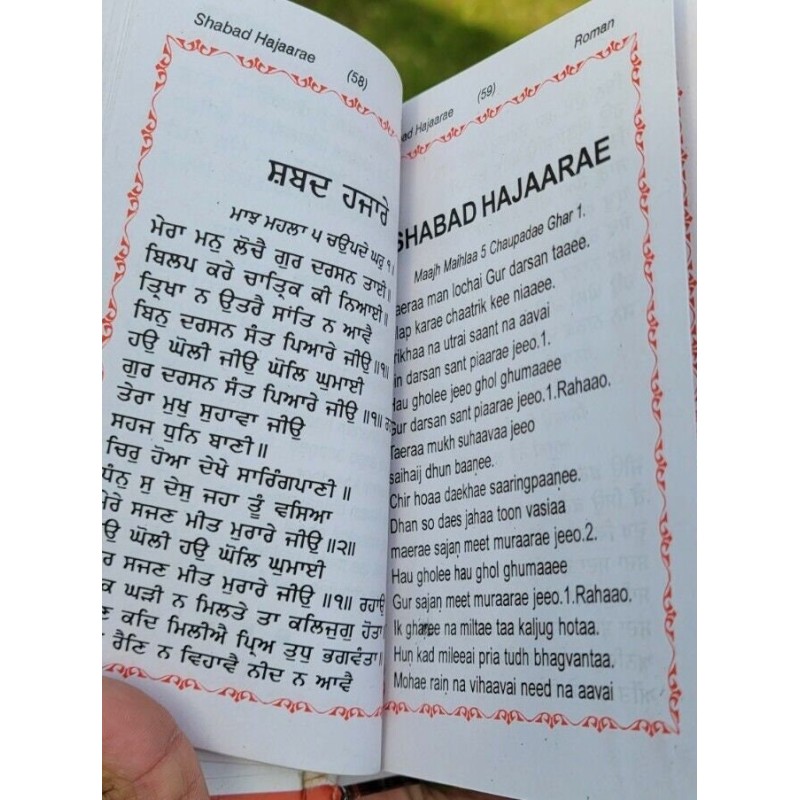 Shabad Hajaarae
(58)
ਸ਼ਬਦ ਹਜਾਰੇ
ਮਾਝ ਮਹਲਾ ੫ ਚਉਪਦੇ ਘਰੁ ੧।
ਮੇਰਾ ਮਨੁ ਲੋਚੈ ਗੁਰ ਦਰਸਨ ਤਾਈ।
ਬਿਲਪ ਕਰੇ ਚਾਤ੍ਰਿਕ ਕੀ ਨਿਆਈ।
ਤ੍ਰਿਖਾ ਨ ਉਤਰੈ ਸਾਂਤਿ ਨ ਆਵੈ
ਬਿਨੁ ਦਰਸਨ ਸੰਤ ਪਿਆਰੇ ਜੀਉ॥੧॥
ਹਉ ਘੋਲੀ ਜੀਉ ਘੋਲਿ ਘੁਮਾਈ
ਗੁਰ ਦਰਸਨ ਸੰਤ ਪਿਆਰੇ ਜੀਉ॥੧॥
ਤੇਰਾ ਮੁਖੁ ਸੁਹਾਵਾ ਜੀਉ
ਸਹਜ ਧੁਨਿ ਬਾਣੀ॥
ਚਿਰੁ ਹੋਆ ਦੇਖੇ ਸਾਰਿੰਗਪਾਣੀ॥
ਧੰਨੁ ਸੁ ਦੇਸੁ ਜਹਾ ਤੂੰ ਵਸਿਆ
ਮੇਰੇ ਸਜਣ ਮੀਤ ਮੁਰਾਰੇ ਜੀਉ॥੨॥
ਘੋਲੀ ਹਉ ਘੋਲਿ ਘੁਮਾਈ
ਸਜਣ ਮੀਤ ਮੁਰਾਰੇ ਜੀਉ॥੧॥ ਰਹਾਉ
ਘੜੀ ਨ ਮਿਲਤੇ ਤਾ ਕਲਿਜੁਗੁ ਹੋਤਾ
ਕਦਿ ਮਿਲੀਐ ਪ੍ਰਿਅ ਤੁਧੁ ਭਗਵੰਤਾ।
ਰੈਣਿ ਨ ਵਿਹਾਵੈ ਨੀਦ ਨ ਆਵੈ
Roman
(59)
Hajaarae
SHABAD HAJAARAE
Maajh Maihlaa 5 Chaupadae Ghar 1.
man lochai Gur darsan taaee.
karae chaatrik kee niaaee.
na utrai saant na aavai
darsan sant piaarae jeeo.1.
Hau gholee jeeo ghol ghumaaee
Gur darsan sant piaarae jeeo.1.Rahaao.
Taeraa mukh suhaavaa jeeo
saihaij dhun baaṇee.
Chir hoaa daekhae saaringpaaṇee.
Dhan so daes jahaa toon vasiaa
maerae sajaṇ meet muraarae jeeo.2.
Hau gholee hau ghol ghumaaee
Gur sajaṇ meet muraarae jeeo.1.Rahaao.
Ik na miltae taa kaljug hotaa.
Huṇ kad mileeai pria tudh bhagvantaa.
Mohae raiṇ na vihaavai need na aavai